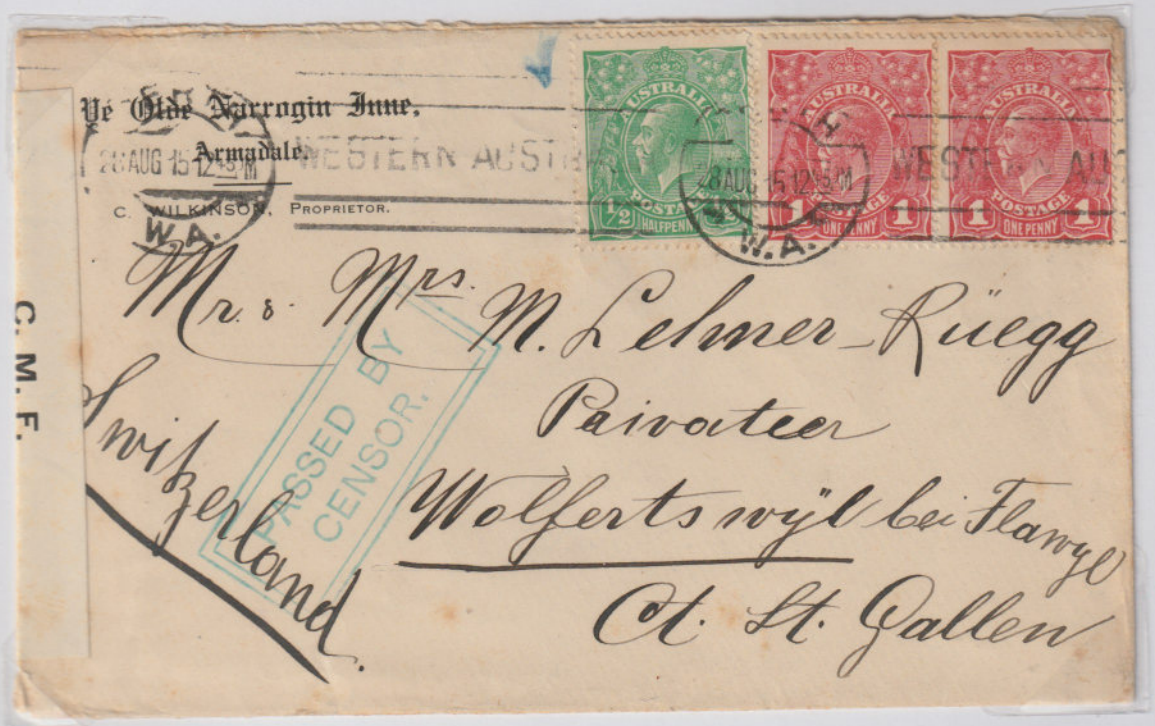 Ye Olde Narrogin Inne,
Armadale.
C. WILKINSON, PROPRIETOR.
28 AUG 15 12
W.A.
WESTERN AUST
AUSTRALIA
1/2
POSTAGE
HALFPENNY
28 AUG 15 12
W.A.
AUSTRALIA
1 POSTAGE 1
ONE PENNY
WESTERN AUS
AUSTRALIA
1 POSTAGE 1
ONE PENNY
C. M. F.
PASSED BY
CENSOR.
Mr. & Mrs. M. Lehner-Rüegg
Privatier
Wolfertswÿl bei Flawyl
Ct. St. Gallen
Switzerland.